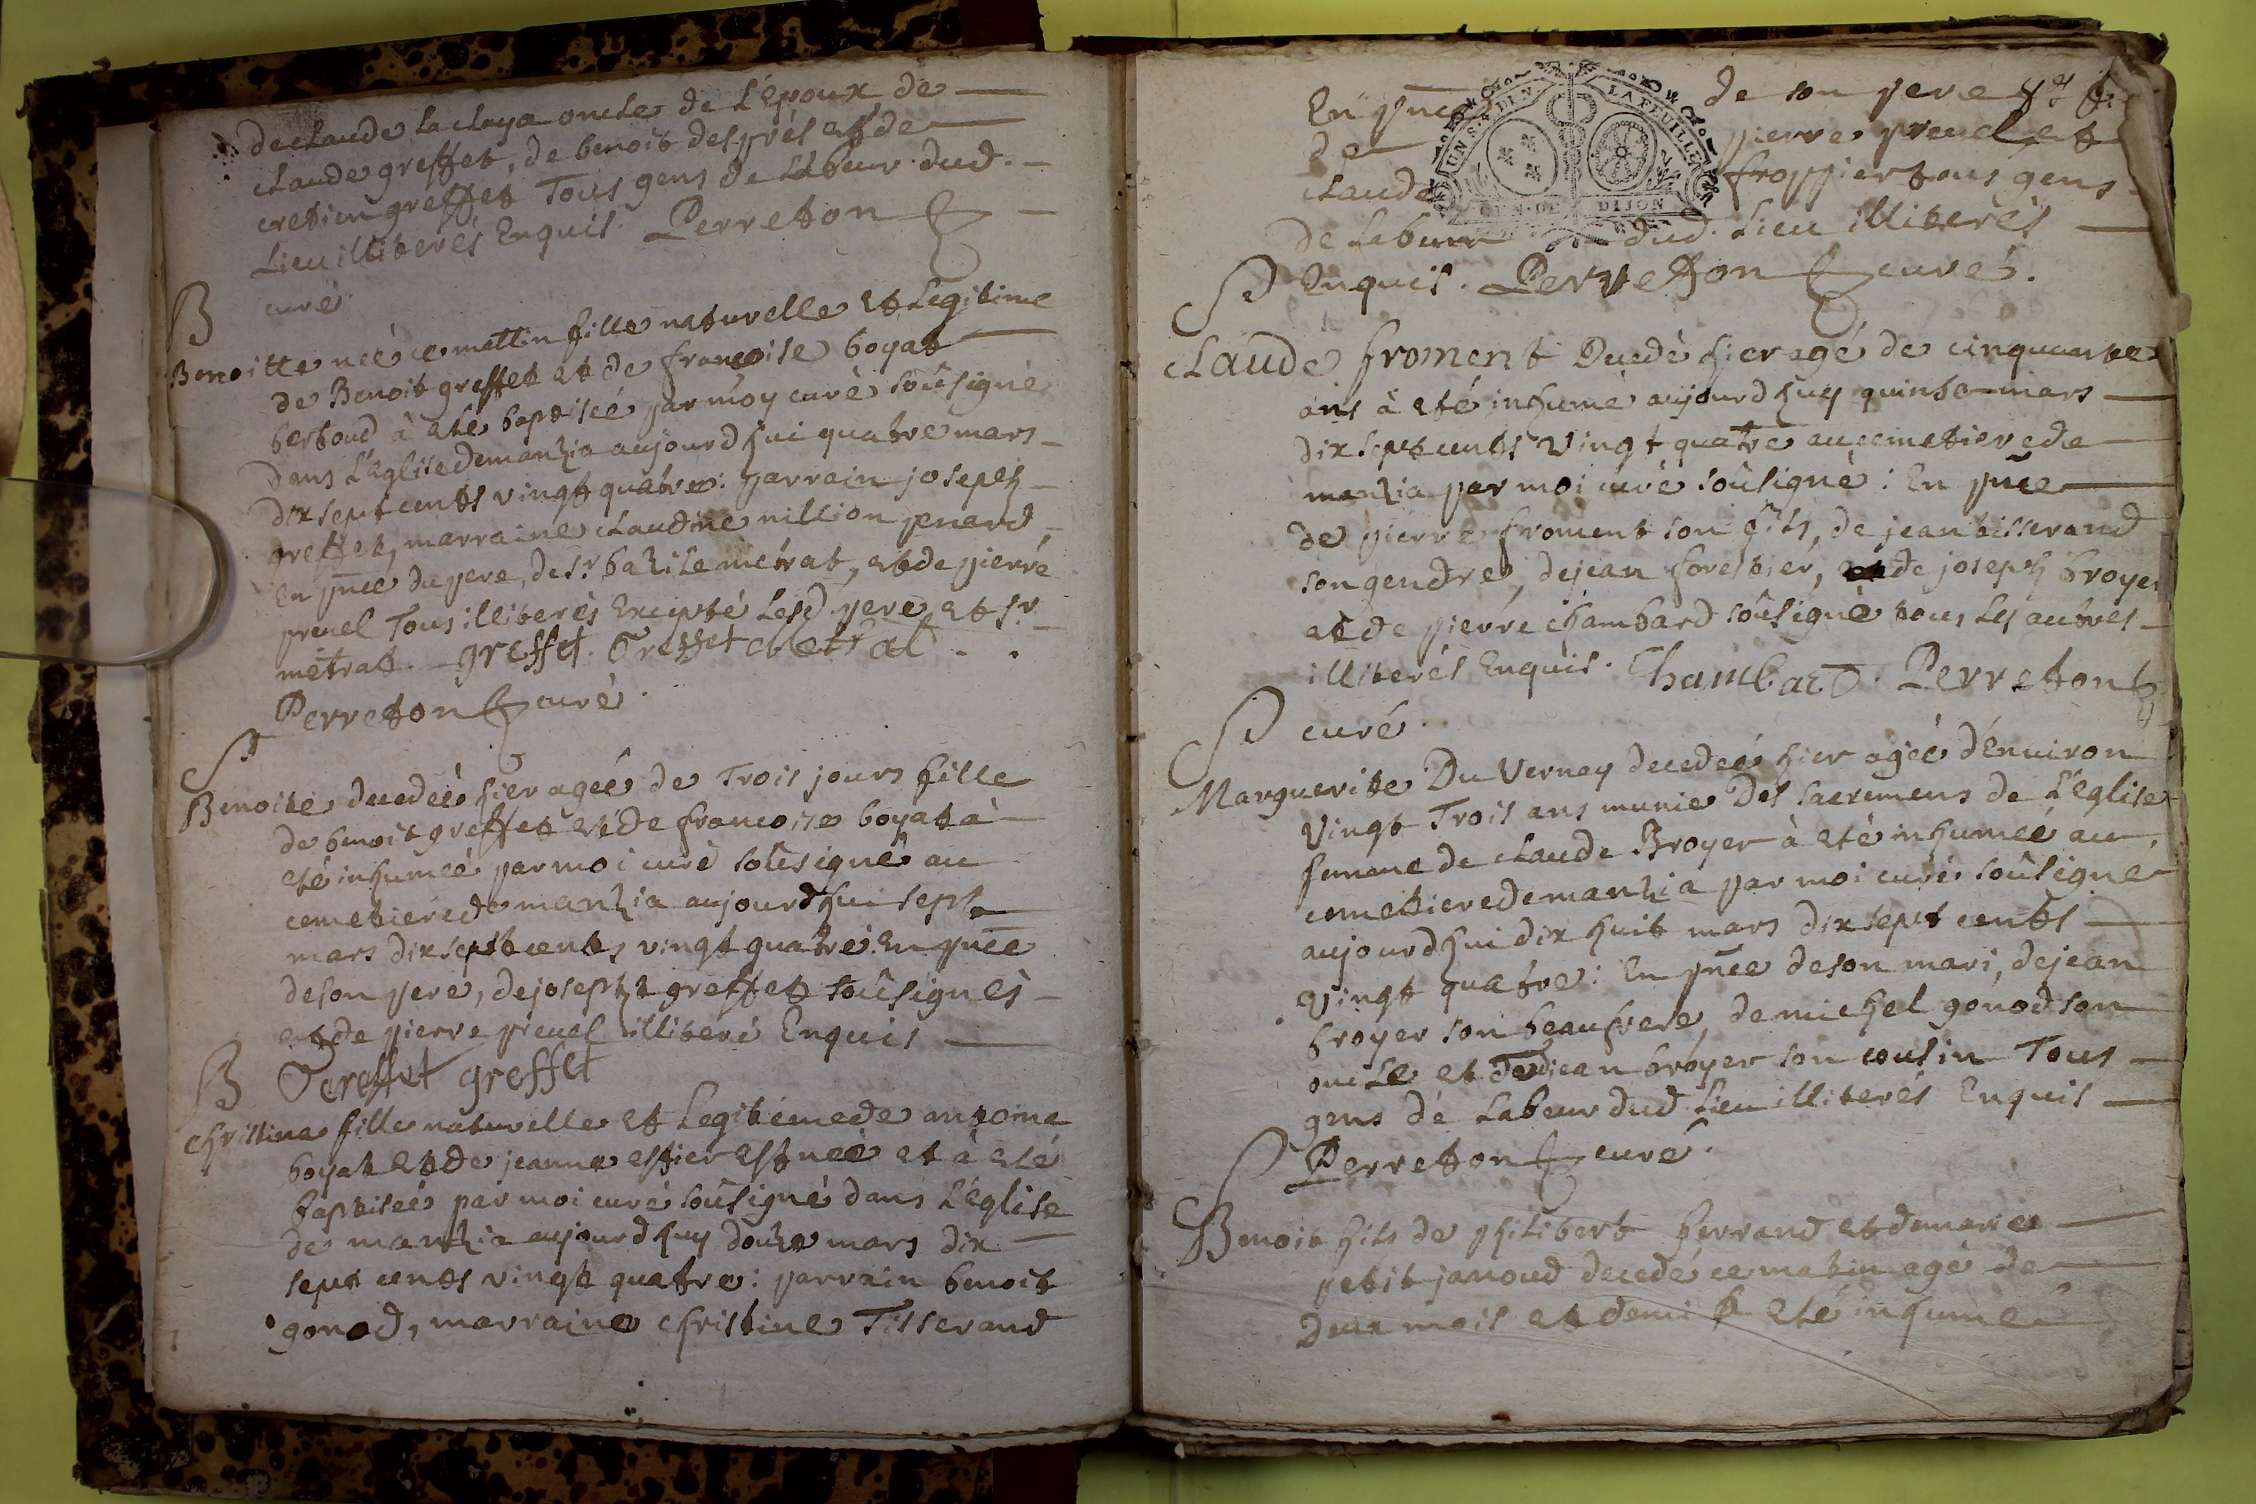 de claude la claya oncle de L'epoux de
claude greffet, de benoit desprès et de
cretien greffet Tous gens de Labeur dud.
Lieu illiterés Enquis. Perreton
curé.
B
Benoitte neé ce mattin fille naturelle et Legitime
de Benoit greffet et de francoise boyat
bertoud à eté baptiseé par moy curé soûsigné
dans L'Eglise de manzia aujourdhui quatre mars
dix sept cents vingt quatre: parrain joseph
greffet, marraine claudine nillion penard
En pnce du pere, de sr bazile metrat, et de pierre
preuel Tous illiterès Excepté Lesd. pere et sr.
metrat. greffet. Greffet Metrat
Perreton curé.
S
Benoite decedeé hier ageé de Trois jours fille
de benoit greffet et de francoise boyat à
eté inhumeé par moi curé soûsigné au
cemetiere de manzia aujourdhui sept
mars dix sept cents vingt quatre En pnce
de son pere, de joseph greffet soûsignés
et de pierre preuel illiteré Enquis
B Greffet greffet
christine fille naturelle et Legitime de antoine
boyat et de jeanne est neé et à eté
baptiseé par moi curé soûsigné dans L'Eglise
de manzia aujourdhuy douze mars dix
sept cents vingt quatre: parrain benoit
gonod, marraine christine Tisserand
En pnce de son pere
de pierre preuel et
claude froppier tous gens
de Labeur dud. Lieu illiterés
UN S. & DIN. LA FEUILLE
GEN. DE DIJON
S Enquis. Perreton curé.
claude froment Decedé hier agé de cinquante
ans à eté inhumé aujourdhuy quinze mars
dix sept cents vingt quatre au cemetiere de
manzia par moi curé soûsigné: En pnce
de pierre froment son fils, de jean tisserand
son gendre, de jean forestier, de joseph broyer
et de pierre chambard soûsigné tous Les autres
illiterés Enquis. Chambard. Perreton
S curé.
Marguerite Du Vernay decedeé hier ageé d'Environ
vingt Trois ans munie Des sacremens de L'Eglise
femme de claude Broyer à eté inhumeé au
cemetiere de manzia par moi curé soûsigné
aujourdhui dix huit mars dix sept cents
vingt quatre: En pnce de son mari, de jean
broyer son beaufrere, de michel gonod son
oncle et de jean broyer son cousin Tous
gens de Labeur dud Lieu illiterés Enquis
S Perreton curé.
Benoit fils de philibert ferrand et de marie
petit janoud decedé ce matin agé de
Deux mois et demi à eté inhumé